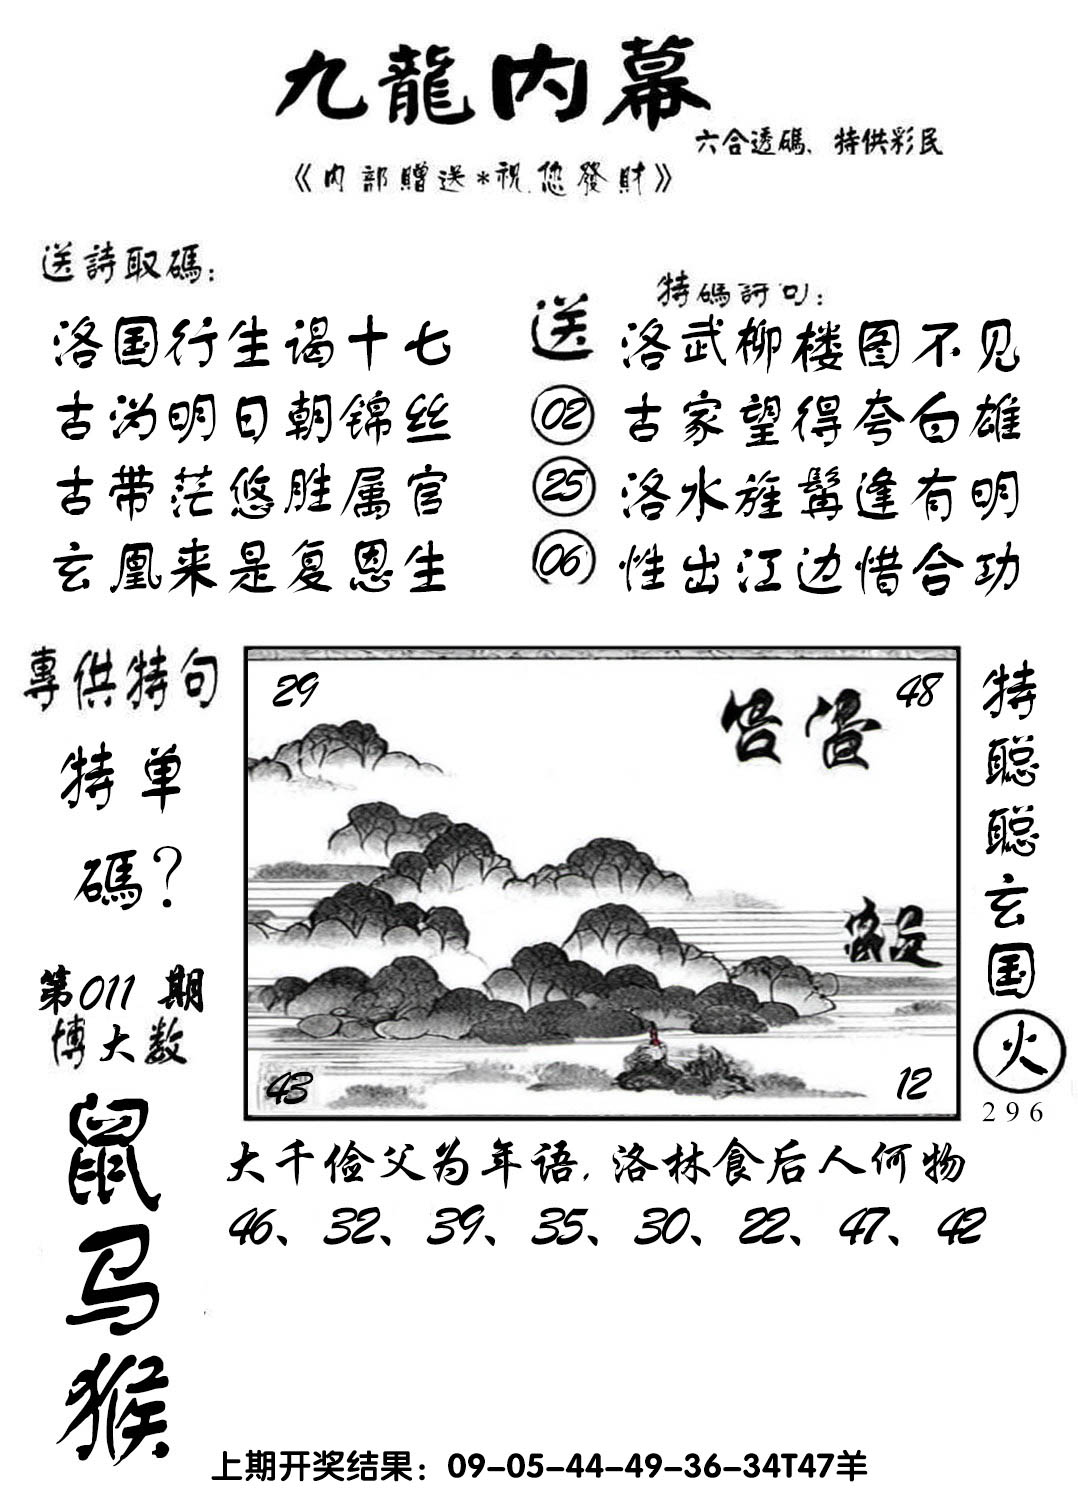 九龍内幕
六合透碼、特供彩民
《内部贈送*祝您發財》
送詩取碼：
洛国行生谒十七
古沩明日朝锦丝
古带茫悠胜属官
玄凰来是复恩生
送
02
25
06
特碼詩句：
洛武柳楼图不见
古家望得夸白雄
洛水旌髯逢有明
性出江边惜合功
專供特句
特单
碼？
第011期
博大数
鼠
马
猴
29
48
43
12
特聪聪玄国
火
296
大千俭父为年语，洛林食后人何物
46、32、39、35、30、22、47、42
上期开奖结果：09-05-44-49-36-34T47羊